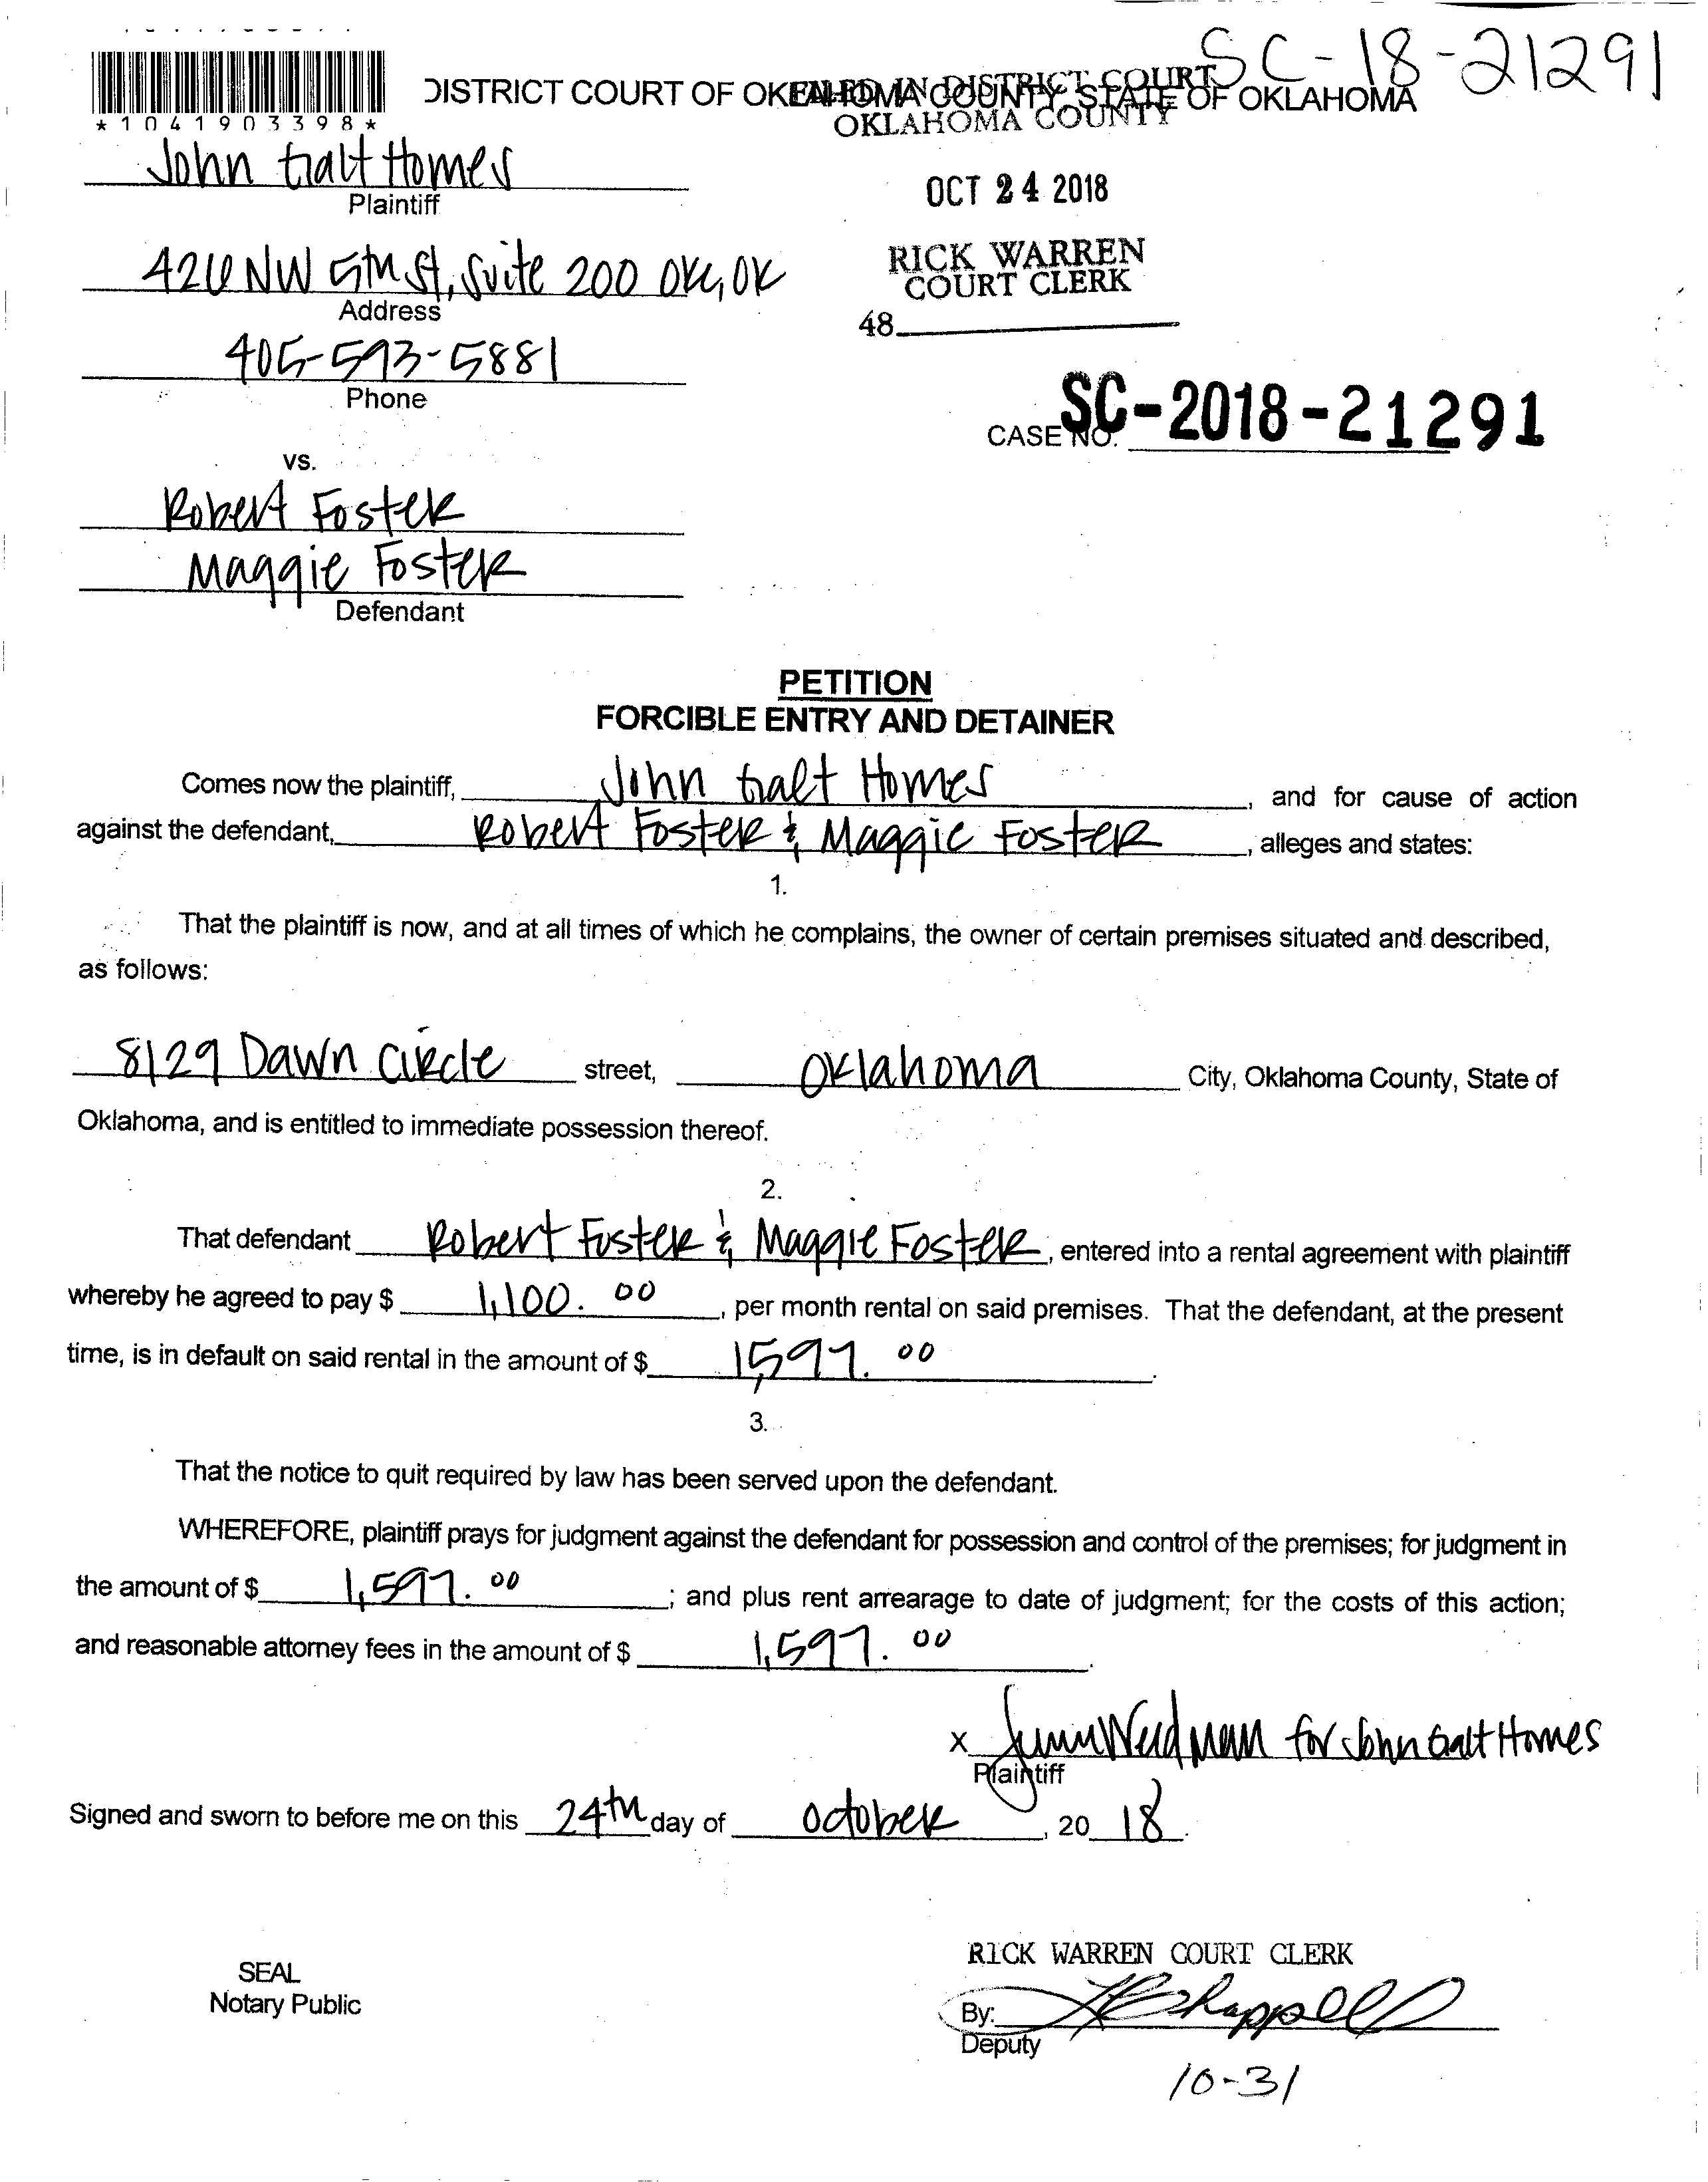 SC-18-21291
DISTRICT COURT OF OKLAHOMA COUNTY, STATE OF OKLAHOMA
FILED IN DISTRICT COURT
OKLAHOMA COUNTY
*1041903398*
John Galt Homes
Plaintiff
OCT 24 2018
RICK WARREN
COURT CLERK
48
426 NW 5th St, Suite 200 OKC, OK
Address
405-593-5881
Phone
CASE NO. SC-2018-21291
vs.
Robert Foster
Maggie Foster
Defendant
PETITION
FORCIBLE ENTRY AND DETAINER
Comes now the plaintiff, John Galt Homes, and for cause of action
against the defendant, Robert Foster & Maggie Foster, alleges and states:
1.
That the plaintiff is now, and at all times of which he complains, the owner of certain premises situated and described,
as follows:
8129 Dawn Circle street, Oklahoma City, Oklahoma County, State of
Oklahoma, and is entitled to immediate possession thereof.
2.
That defendant Robert Foster & Maggie Foster, entered into a rental agreement with plaintiff
whereby he agreed to pay $ 1,100.00, per month rental on said premises. That the defendant, at the present
time, is in default on said rental in the amount of $ 1,597.00.
3.
That the notice to quit required by law has been served upon the defendant.
WHEREFORE, plaintiff prays for judgment against the defendant for possession and control of the premises; for judgment in
the amount of $ 1,597.00; and plus rent arrearage to date of judgment; for the costs of this action;
and reasonable attorney fees in the amount of $ 1,597.00.
x for John Galt Homes
Plaintiff
Signed and sworn to before me on this 24th day of October, 2018.
RICK WARREN COURT CLERK
SEAL
Notary Public
By: Chappell
Deputy
10-31